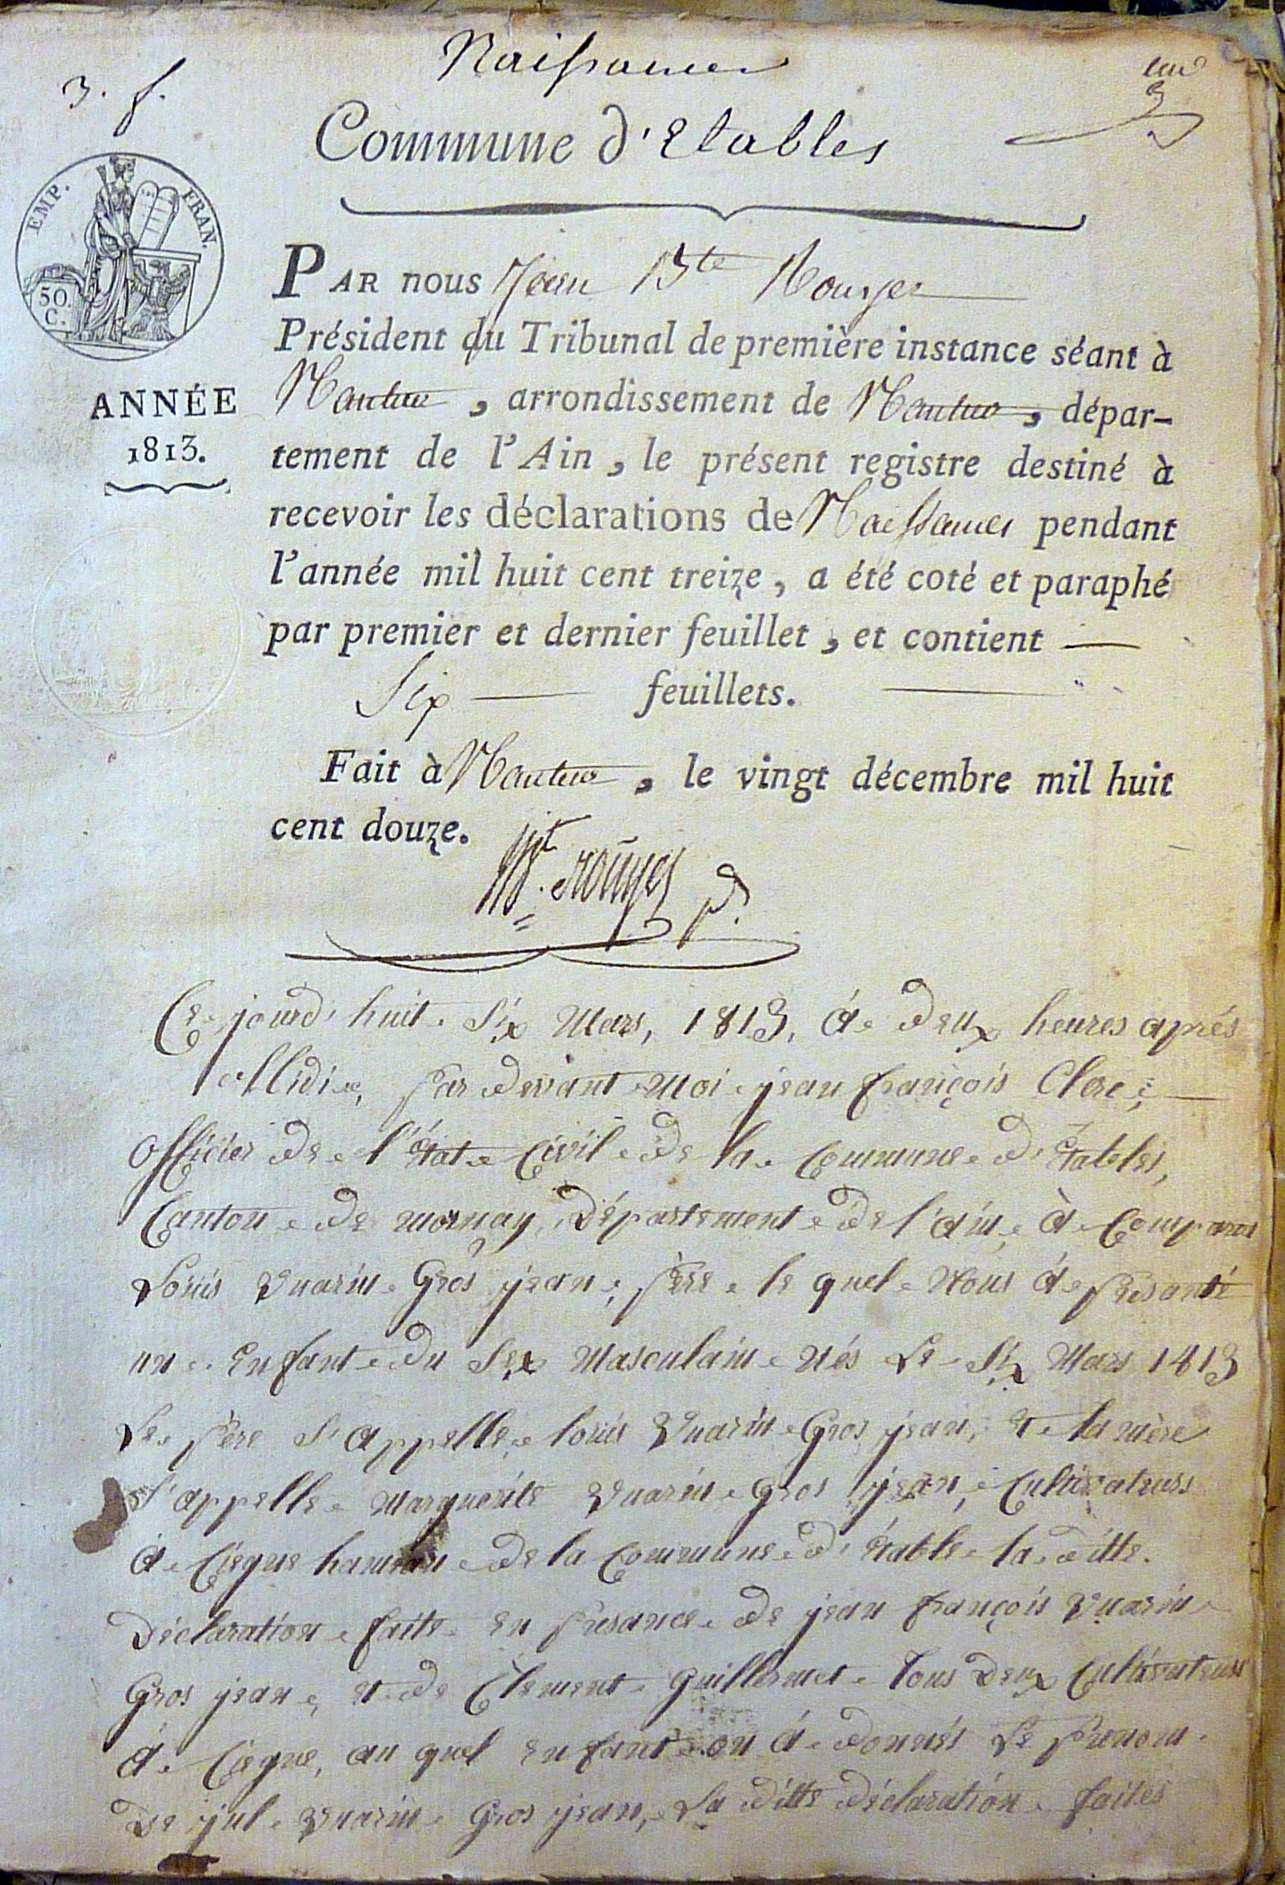 Naissances
3. f.
Commune d'Etables
EMP. FRAN.
50. C.
PAR nous Jean Bte Rouyer
Président du Tribunal de première instance séant à
Nantua, arrondissement de Nantua, dépar-
tement de l'Ain, le présent registre destiné à
recevoir les déclarations de Naissances pendant
l'année mil huit cent treize, a été coté et paraphé
par premier et dernier feuillet, et contient
Six feuillets.
Fait à Nantua, le vingt décembre mil huit
cent douze.
ANNÉE
1813.
Ce jourd'huit Six Mars, 1813, à deux heures aprés
Midi, par devant Moi jean françois Clerc,
officier de l'état Civil de la Commune d'étables,
Canton de mornay, département de l'ain, à Comparu
Louis Vuarin Gros jean, père le quel Nous à présanté
un Enfant du Sex Masculain nés Le Six Mars 1813
Le père s'appelle louis Vuarin Gros jean, et la mère
s'appelle Marguerite Vuarin gros jean, Cultivateurs
à Ciegne hameau de la Commune d'étable la ditte.
Déclaration faite en présance de jean françois Vuarin
Gros jean, et de Clement Guillermet tous deux Cultivateurs
à Ciegne, au quel enfant on à donnés Le prenom
De jul Vuarin Gros jean, La ditte déclaration faites